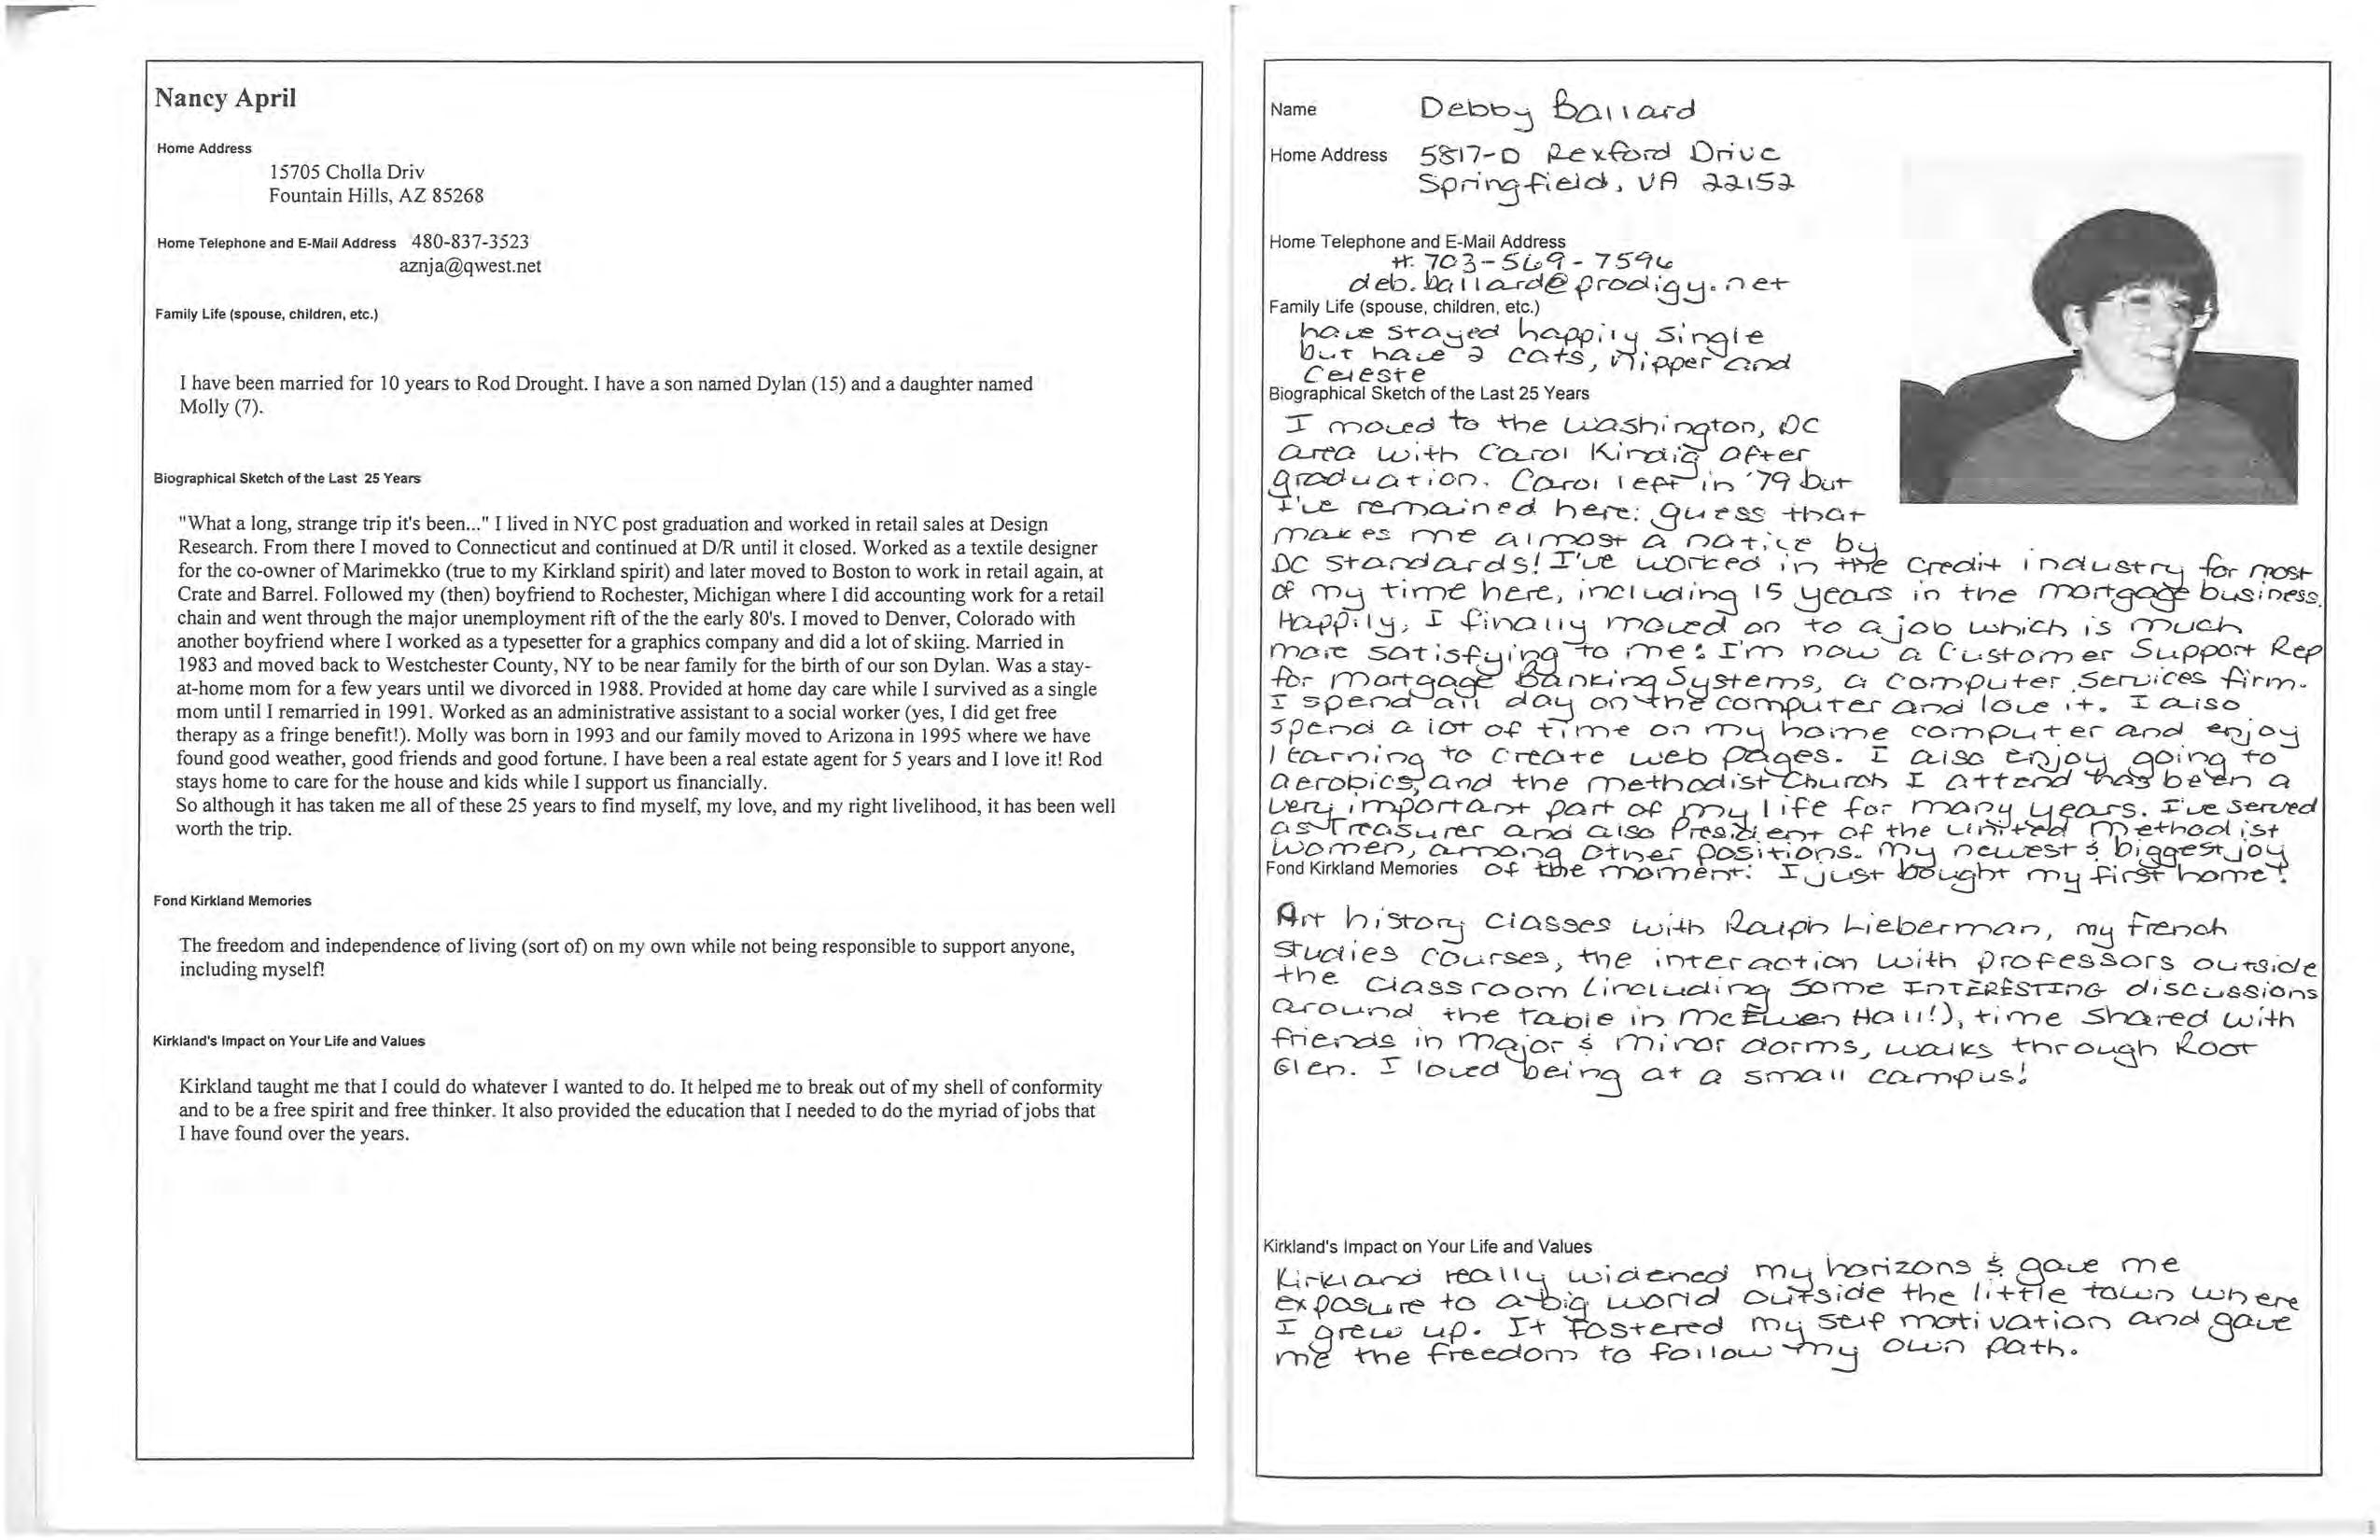 Nancy April
Home Address
15705 Cholla Driv
Fountain Hills, AZ 85268
Home Telephone and E-Mail Address 480-837-3523
aznja@qwest.net
Family Life (spouse, children, etc.)
I have been married for 10 years to Rod Drought. I have a son named Dylan (15) and a daughter named
Molly (7).
Biographical Sketch of the Last 25 Years
"What a long, strange trip it's been..." I lived in NYC post graduation and worked in retail sales at Design
Research. From there I moved to Connecticut and continued at D/R until it closed. Worked as a textile designer
for the co-owner of Marimekko (true to my Kirkland spirit) and later moved to Boston to work in retail again, at
Crate and Barrel. Followed my (then) boyfriend to Rochester, Michigan where I did accounting work for a retail
chain and went through the major unemployment rift of the the early 80's. I moved to Denver, Colorado with
another boyfriend where I worked as a typesetter for a graphics company and did a lot of skiing. Married in
1983 and moved back to Westchester County, NY to be near family for the birth of our son Dylan. Was a stay-
at-home mom for a few years until we divorced in 1988. Provided at home day care while I survived as a single
mom until I remarried in 1991. Worked as an administrative assistant to a social worker (yes, I did get free
therapy as a fringe benefit!). Molly was born in 1993 and our family moved to Arizona in 1995 where we have
found good weather, good friends and good fortune. I have been a real estate agent for 5 years and I love it! Rod
stays home to care for the house and kids while I support us financially.
So although it has taken me all of these 25 years to find myself, my love, and my right livelihood, it has been well
worth the trip.
Fond Kirkland Memories
The freedom and independence of living (sort of) on my own while not being responsible to support anyone,
including myself!
Kirkland's Impact on Your Life and Values
Kirkland taught me that I could do whatever I wanted to do. It helped me to break out of my shell of conformity
and to be a free spirit and free thinker. It also provided the education that I needed to do the myriad of jobs that
I have found over the years.
Name Debby Ballard
Home Address 5817-D Rexford Drive
Springfield, VA 22152
Home Telephone and E-Mail Address
#: 703-569-7596
deb.ballard@prodigy.net
Family Life (spouse, children, etc.)
have stayed happily single
but have 2 cats, Nipper and
Celeste
Biographical Sketch of the Last 25 Years
I moved to the Washington, DC
area with Carol Kindig after
graduation. Carol left in '79 but
I've remained here: guess that
makes me almost a native by
DC standards! I've worked in the credit industry for most
of my time here, including 15 years in the mortgage business.
Happily, I finally moved on to a job which is much
more satisfying to me: I'm now a Customer Support Rep
for Mortgage Banking Systems, a computer services firm.
I spend all day on the computer and love it. I also
spend a lot of time on my home computer and enjoy
learning to create web pages. I also enjoy going to
aerobics, and the Methodist Church I attend has been a
very important part of my life for many years. I've served
as Treasurer and also President of the United Methodist
Women, among other positions. My newest & biggest joy
Fond Kirkland Memories of the moment: I just bought my first home!
Art history classes with Ralph Lieberman, my French
Studies courses, the interaction with professors outside
the classroom (including some INTERESTING discussions
around the table in McEwen Hall!), time shared with
friends in Major & Minor dorms, walks through Root
Glen. I loved being at a small campus!
Kirkland's Impact on Your Life and Values
Kirkland really widened my horizons & gave me
exposure to a big world outside the little town where
I grew up. It fostered my self motivation and gave
me the freedom to follow my own path.